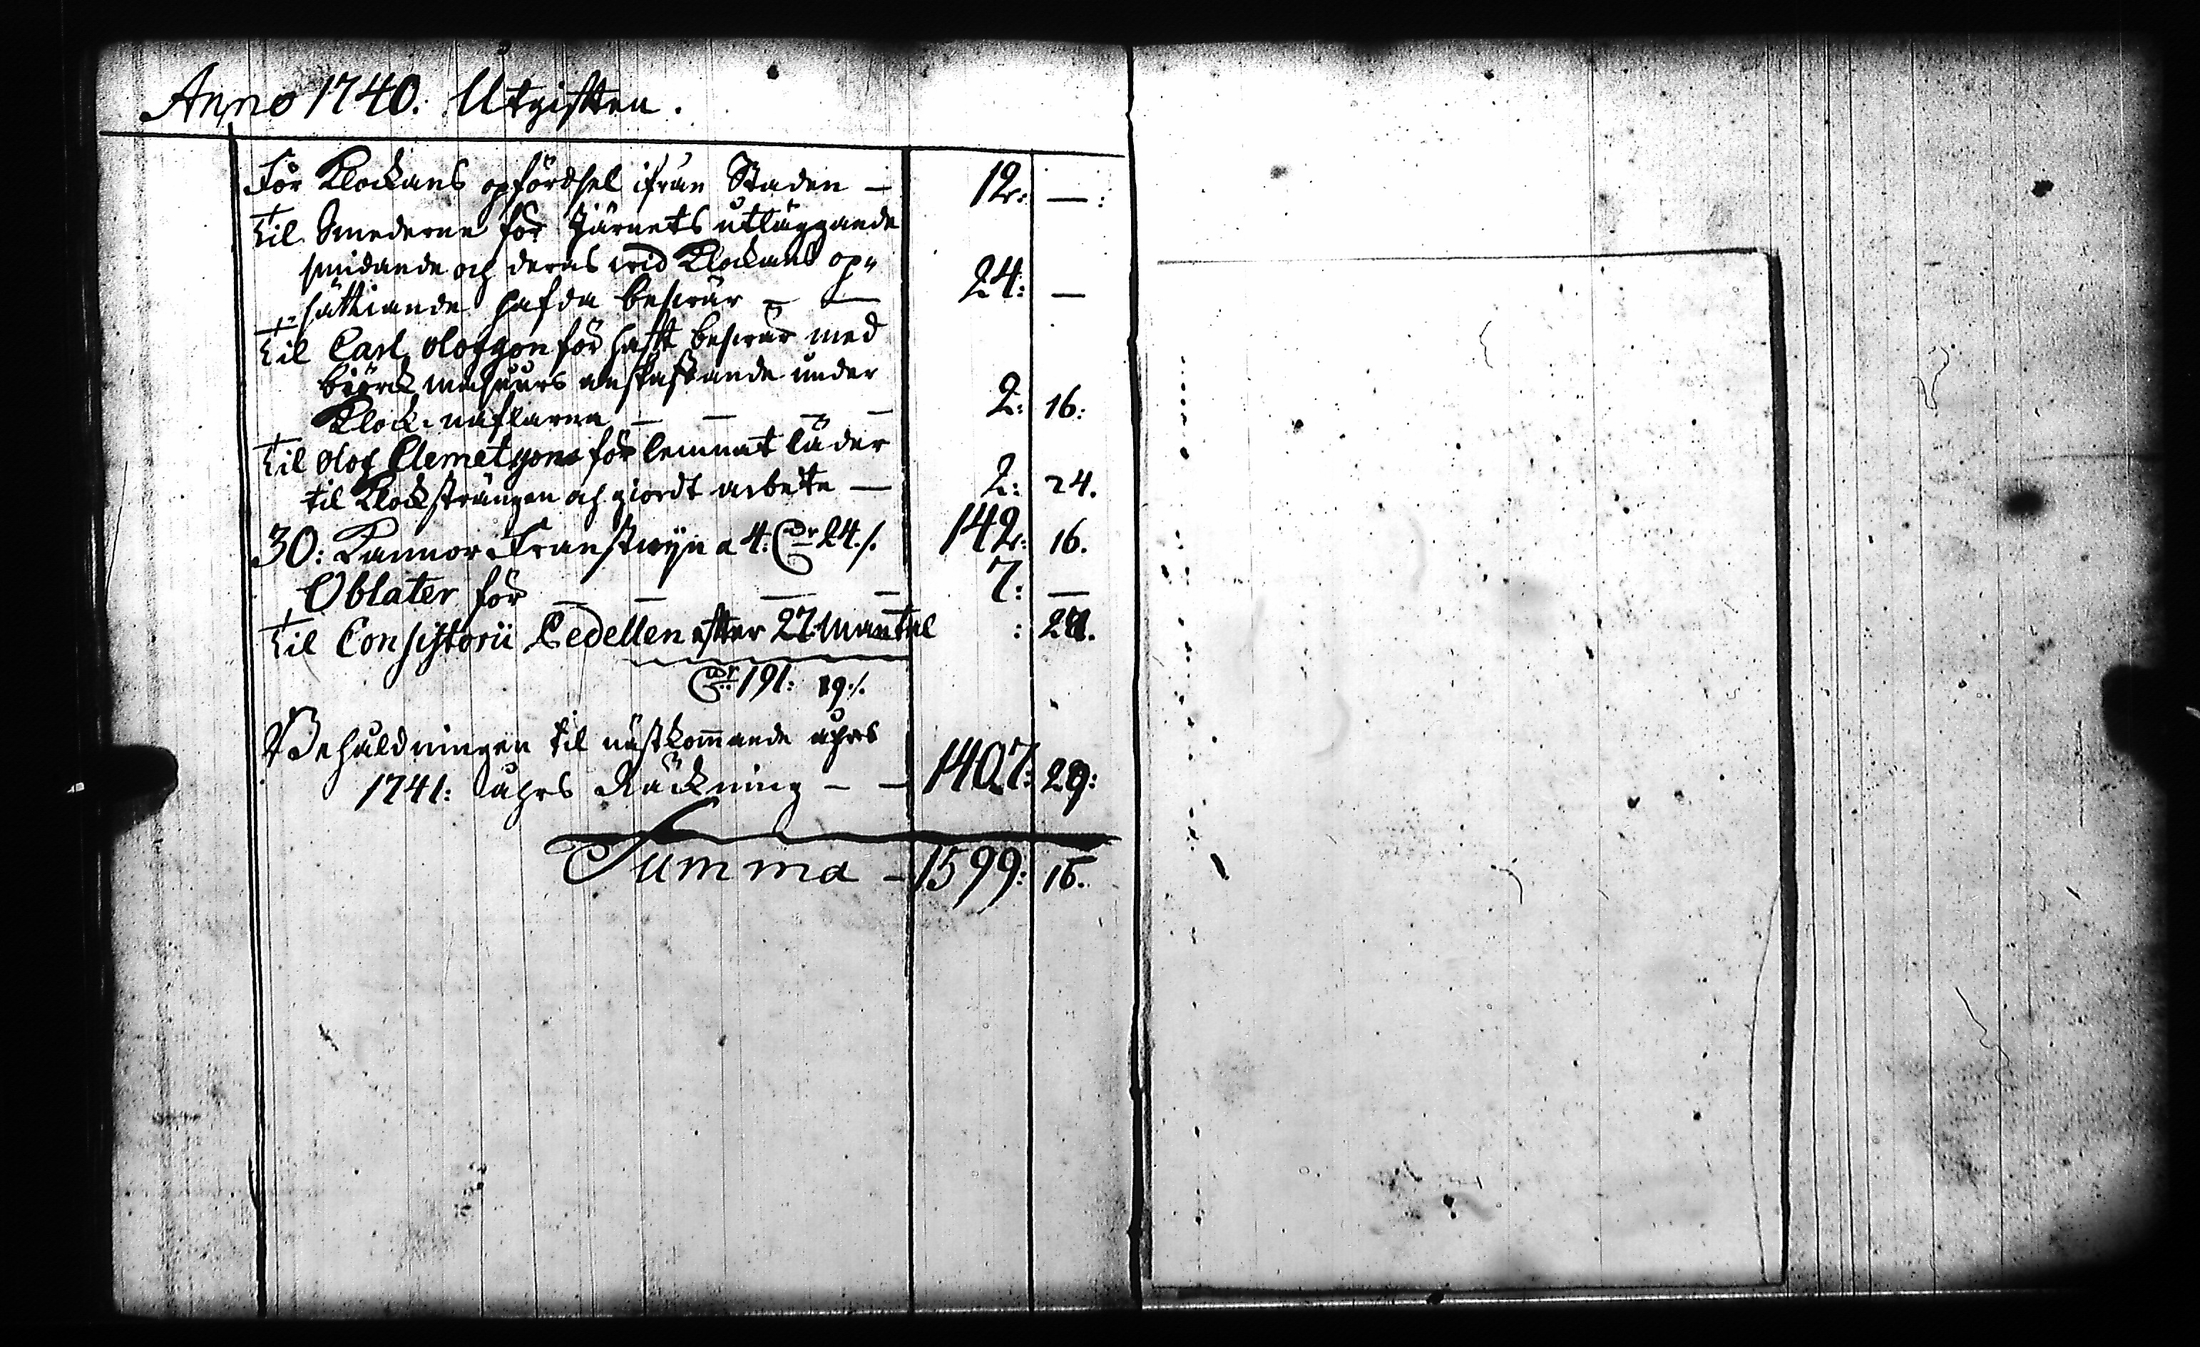 Anno 1740. Utgiften.
För Klockans opfördsel ifrån Staden — 12: —:
Til Smederne för Järnets utläggande
smidande och deras wid Klockans op„
sättiande hafda beswär — — 24: —
Til Carl Olofzon för hafft beswär med
biörk anskaffande under
Klock. naflarna — — — — 2: 16:
Til Olof Clemetzon för lemnat läder
til Klocksträngen och giordt arbete — 2: 24.
30: Kannor Franskwijn a 4: Cdr 24./. 142: 16.
Oblater för — — — — 7: —
Til Consistorii Pedellen efter 27 Mantal : 27.
Cdr 191: 19./.
Behåldningen til nästkommande åhrs
1741: åhrs Räckning — — 1407: 29:
Summa — 1599: 16.